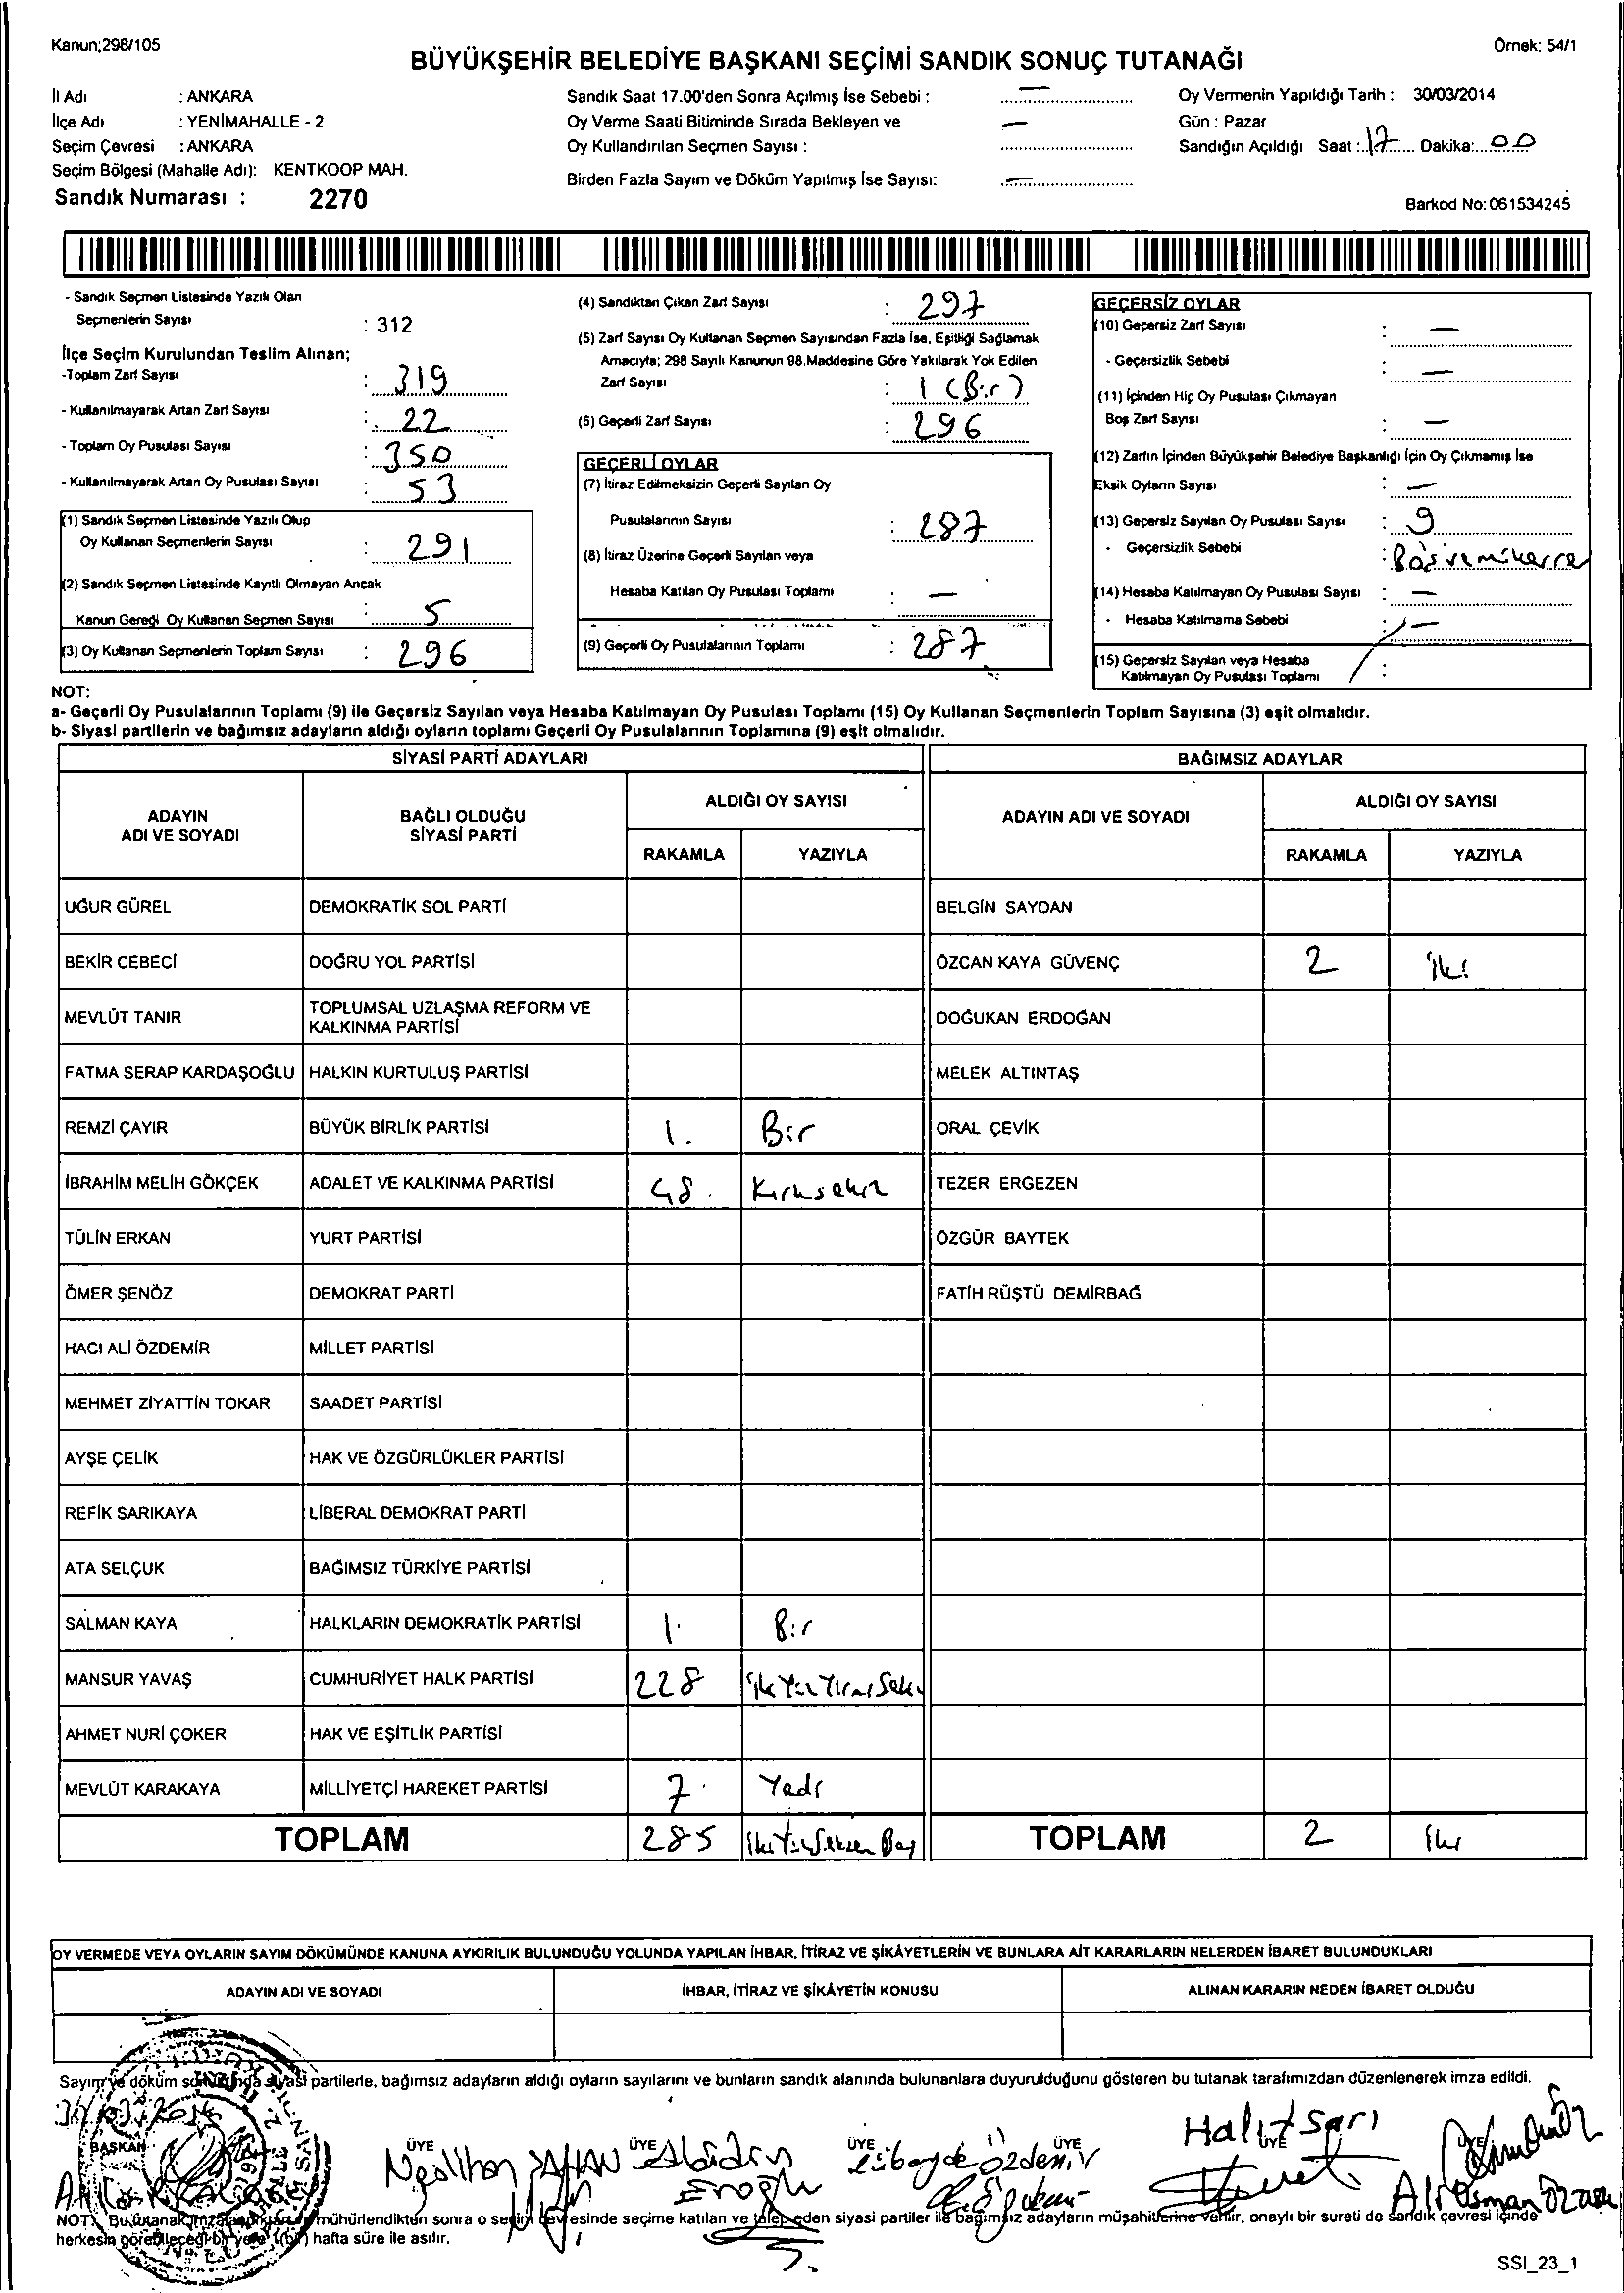 Kanun;298/105
Örnek: 54/1
BÜYÜKŞEHİR BELEDİYE BAŞKANI SEÇİMİ SANDIK SONUÇ TUTANAĞI
İl Adı : ANKARA
İlçe Adı : YENİMAHALLE - 2
Seçim Çevresi : ANKARA
Seçim Bölgesi (Mahalle Adı): KENTKOOP MAH.
Sandık Numarası : 2270
Sandık Saat 17.00'den Sonra Açılmış İse Sebebi : —
Oy Verme Saati Bitiminde Sırada Bekleyen ve —
Oy Kullandırılan Seçmen Sayısı :
Birden Fazla Sayım ve Döküm Yapılmış İse Sayısı: —
Oy Vermenin Yapıldığı Tarih : 30/03/2014
Gün : Pazar
Sandığın Açıldığı Saat : 17 Dakika: 00
Barkod No: 061534245
- Sandık Seçmen Listesinde Yazılı Olan
Seçmenlerin Sayısı : 312
İlçe Seçim Kurulundan Teslim Alınan;
-Toplam Zarf Sayısı : 319
- Kullanılmayarak Artan Zarf Sayısı : 22
- Toplam Oy Pusulası Sayısı : 350
- Kullanılmayarak Artan Oy Pusulası Sayısı : 53
(1) Sandık Seçmen Listesinde Yazılı Olup
Oy Kullanan Seçmenlerin Sayısı : 291
(2) Sandık Seçmen Listesinde Kayıtlı Olmayan Ancak
Kanun Gereği Oy Kullanan Seçmen Sayısı : 5
(3) Oy Kullanan Seçmenlerin Toplam Sayısı : 296
(4) Sandıktan Çıkan Zarf Sayısı : 297
(5) Zarf Sayısı Oy Kullanan Seçmen Sayısından Fazla İse, Eşitliği Sağlamak
Amacıyla; 298 Sayılı Kanunun 98.Maddesine Göre Yakılarak Yok Edilen
Zarf Sayısı : 1 (Bir)
(6) Geçerli Zarf Sayısı : 296
GEÇERLİ OYLAR
(7) İtiraz Edilmeksizin Geçerli Sayılan Oy
Pusulalarının Sayısı : 287
(8) İtiraz Üzerine Geçerli Sayılan veya
Hesaba Katılan Oy Pusulası Toplamı : —
(9) Geçerli Oy Pusulalarının Toplamı : 287
GEÇERSİZ OYLAR
(10) Geçersiz Zarf Sayısı : —
- Geçersizlik Sebebi : —
(11) İçinden Hiç Oy Pusulası Çıkmayan
Boş Zarf Sayısı : —
(12) Zarfın İçinden Büyükşehir Belediye Başkanlığı İçin Oy Çıkmamış İse
Eksik Oyların Sayısı : —
(13) Geçersiz Sayılan Oy Pusulası Sayısı : 9
- Geçersizlik Sebebi :
(14) Hesaba Katılmayan Oy Pusulası Sayısı : —
- Hesaba Katılmama Sebebi : —
(15) Geçersiz Sayılan veya Hesaba
Katılmayan Oy Pusulası Toplamı :
NOT:
a- Geçerli Oy Pusulalarının Toplamı (9) ile Geçersiz Sayılan veya Hesaba Katılmayan Oy Pusulası Toplamı (15) Oy Kullanan Seçmenlerin Toplam Sayısına (3) eşit olmalıdır.
b- Siyasi partilerin ve bağımsız adayların aldığı oyların toplamı Geçerli Oy Pusulalarının Toplamına (9) eşit olmalıdır.
SİYASİ PARTİ ADAYLARI
BAĞIMSIZ ADAYLAR
ADAYIN ADI VE SOYADI
BAĞLI OLDUĞU SİYASİ PARTİ
ALDIĞI OY SAYISI
RAKAMLA YAZIYLA
ADAYIN ADI VE SOYADI
ALDIĞI OY SAYISI
RAKAMLA YAZIYLA
UĞUR GÜREL DEMOKRATİK SOL PARTİ BELGİN SAYDAN
BEKİR CEBECİ DOĞRU YOL PARTİSİ ÖZCAN KAYA GÜVENÇ 2 İki
MEVLÜT TANIR TOPLUMSAL UZLAŞMA REFORM VE KALKINMA PARTİSİ DOĞUKAN ERDOĞAN
FATMA SERAP KARDAŞOĞLU HALKIN KURTULUŞ PARTİSİ MELEK ALTINTAŞ
REMZİ ÇAYIR BÜYÜK BİRLİK PARTİSİ 1. Bir ORAL ÇEVİK
İBRAHİM MELİH GÖKÇEK ADALET VE KALKINMA PARTİSİ 48. Kırksekiz TEZER ERGEZEN
TÜLİN ERKAN YURT PARTİSİ ÖZGÜR BAYTEK
ÖMER ŞENÖZ DEMOKRAT PARTİ FATİH RÜŞTÜ DEMİRBAĞ
HACI ALİ ÖZDEMİR MİLLET PARTİSİ
MEHMET ZİYATTİN TOKAR SAADET PARTİSİ
AYŞE ÇELİK HAK VE ÖZGÜRLÜKLER PARTİSİ
REFİK SARIKAYA LİBERAL DEMOKRAT PARTİ
ATA SELÇUK BAĞIMSIZ TÜRKİYE PARTİSİ
SALMAN KAYA HALKLARIN DEMOKRATİK PARTİSİ 1. Bir
MANSUR YAVAŞ CUMHURİYET HALK PARTİSİ 228
AHMET NURİ ÇOKER HAK VE EŞİTLİK PARTİSİ
MEVLÜT KARAKAYA MİLLİYETÇİ HAREKET PARTİSİ 7. Yedi
TOPLAM 285 TOPLAM 2 İki
OY VERMEDE VEYA OYLARIN SAYIM DÖKÜMÜNDE KANUNA AYKIRILIK BULUNDUĞU YOLUNDA YAPILAN İHBAR, İTİRAZ VE ŞİKÂYETLERİN VE BUNLARA AİT KARARLARIN NELERDEN İBARET BULUNDUKLARI
ADAYIN ADI VE SOYADI İHBAR, İTİRAZ VE ŞİKÂYETİN KONUSU ALINAN KARARIN NEDEN İBARET OLDUĞU
Sayım ve döküm sonucunda siyasi partilerle, bağımsız adayların aldığı oyların sayılarını ve bunların sandık alanında bulunanlara duyurulduğunu gösteren bu tutanak tarafımızdan düzenlenerek imza edildi.
BAŞKAN ÜYE ÜYE ÜYE ÜYE ÜYE ÜYE
Halit Sarı
Eroğlu
Ali Osman
NOT: Bu tutanak mühürlendikten sonra o seçim çevresinde seçime katılan ve talep eden siyasi partiler ile bağımsız adayların müşahitlerine verilir, onaylı bir sureti de sandık çevresi içinde
herkesin görebileceği bir yere (bir) hafta süre ile asılır.
SSI_23_1